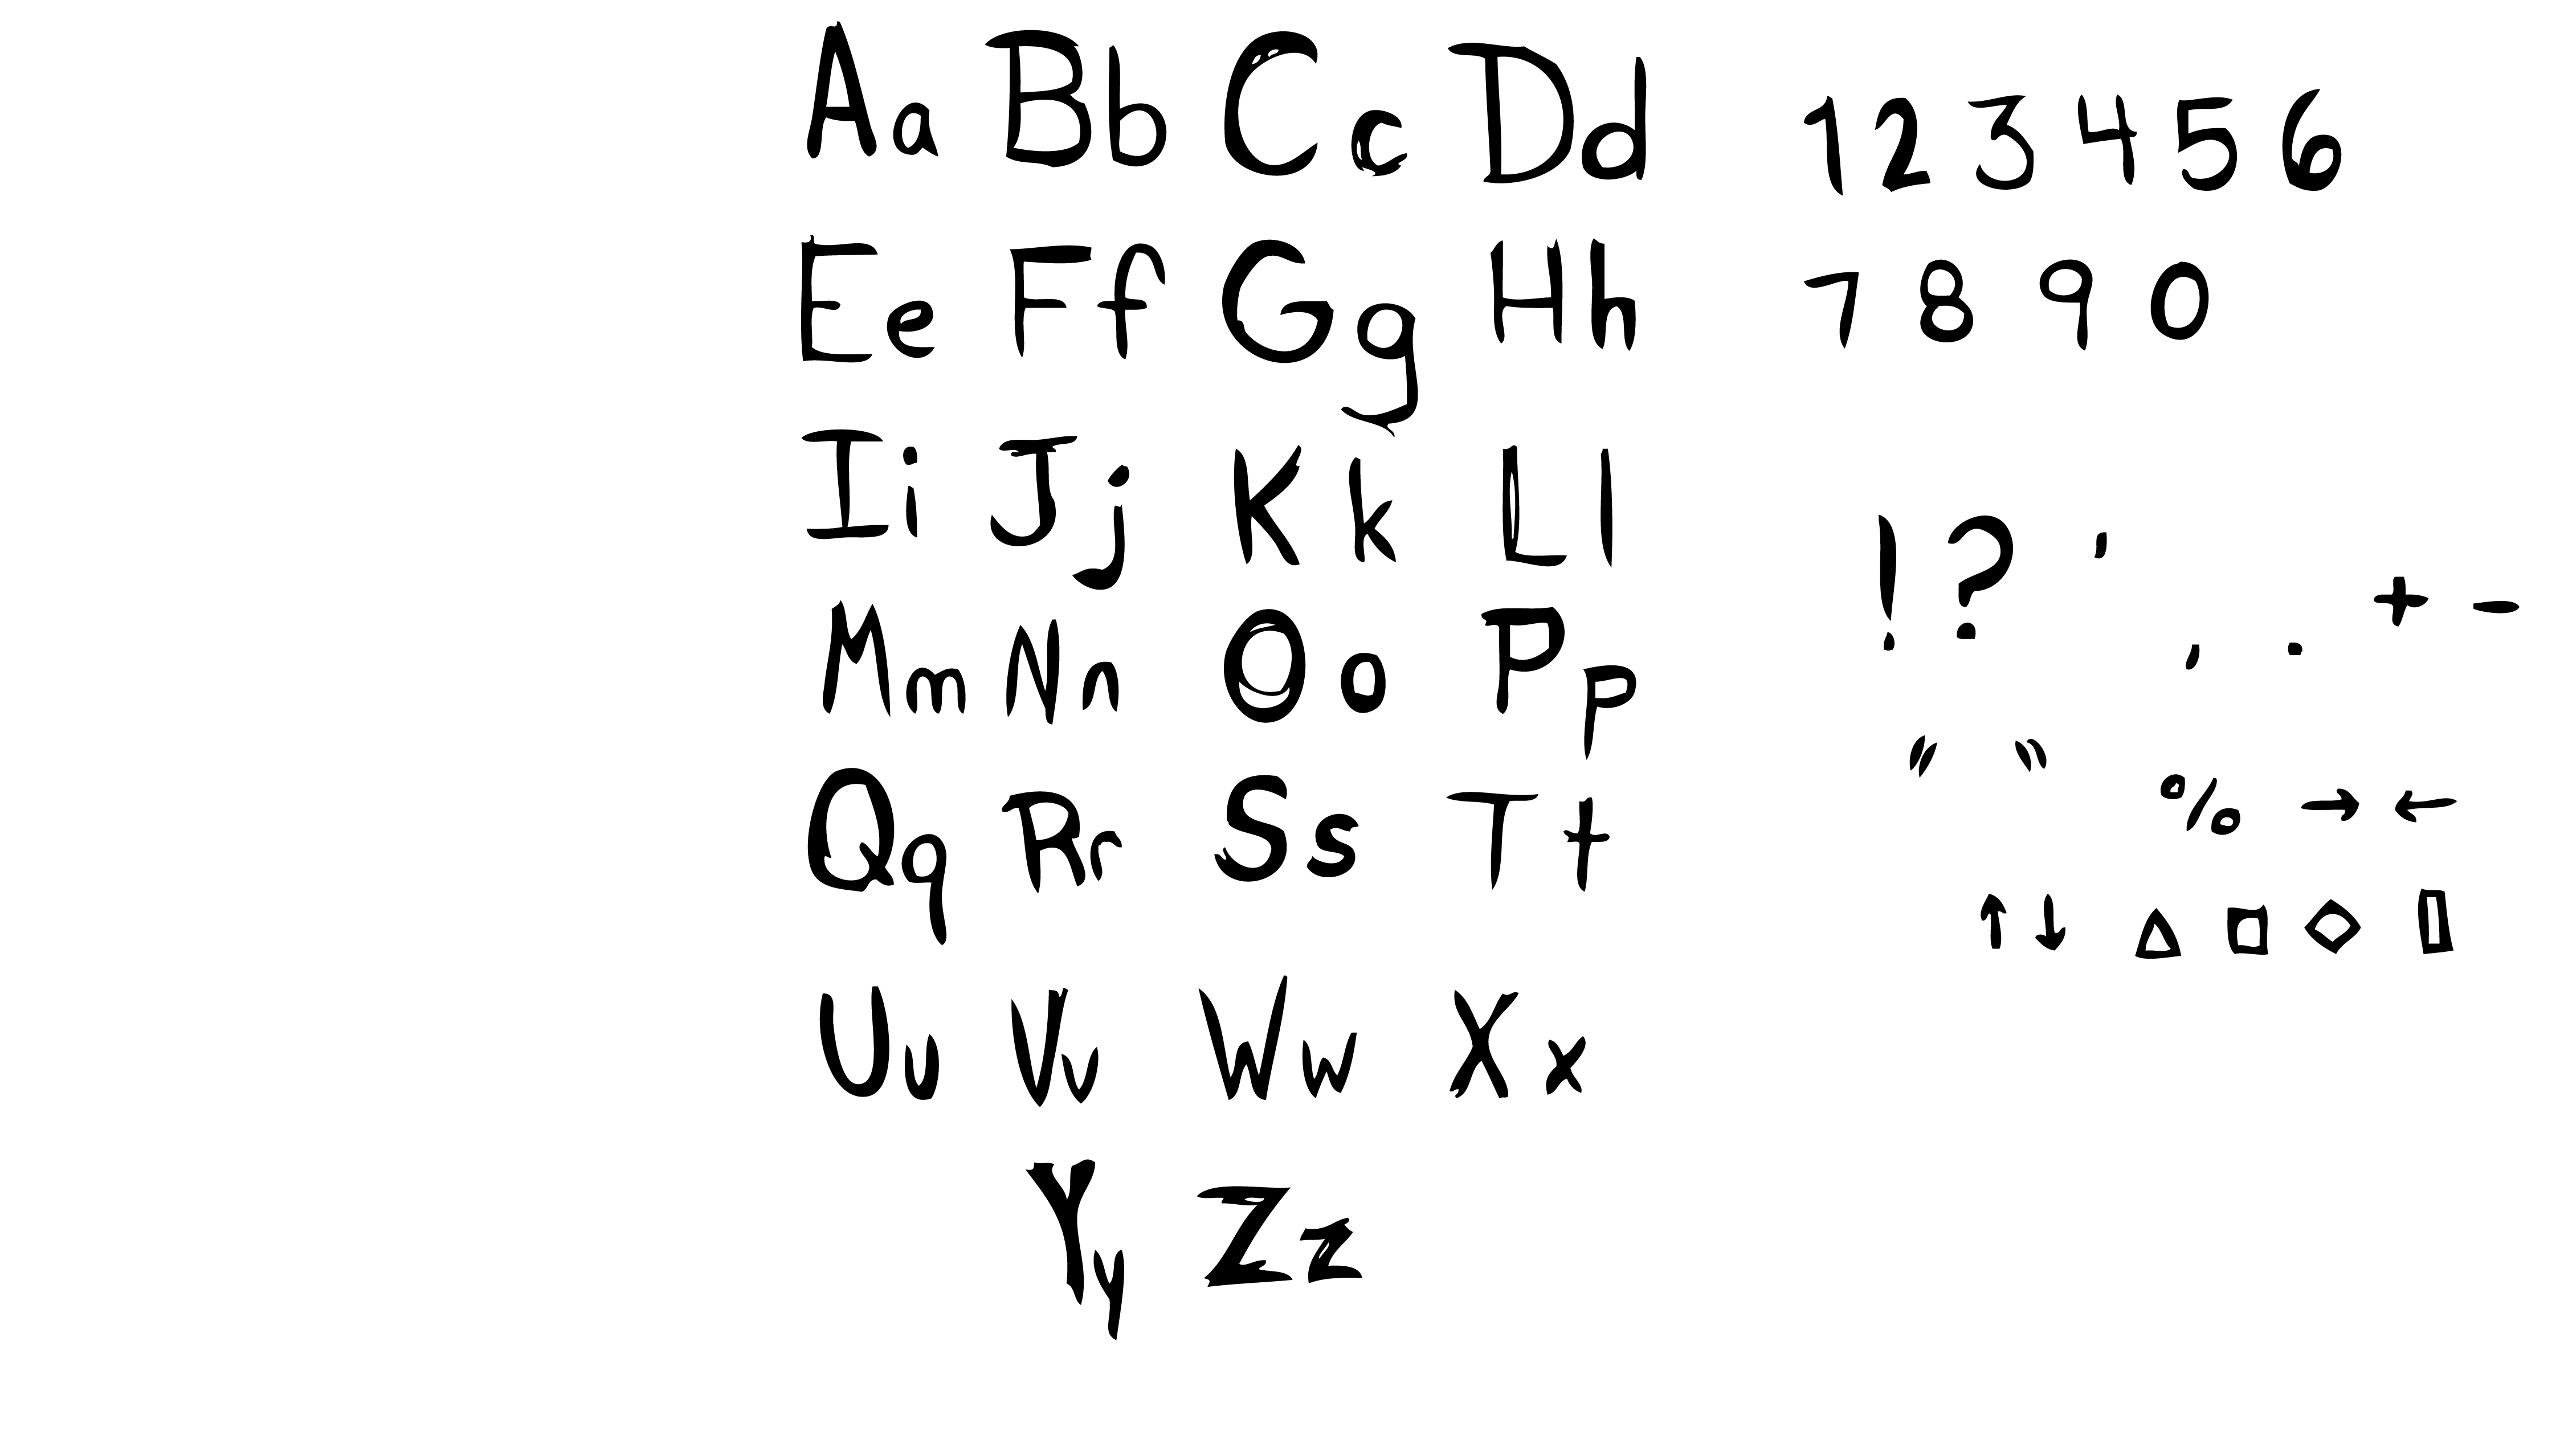 Aa Bb Cc Dd
Ee Ff Gg Hh
Ii Jj Kk Ll
Mm Nn Oo Pp
Qq Rr Ss Tt
Uu Vv Ww Xx
Yy Zz
1 2 3 4 5 6
7 8 9 0
! ? ' , . + -
“ ” % → ←
↑ ↓ △ □ ◇ ▯